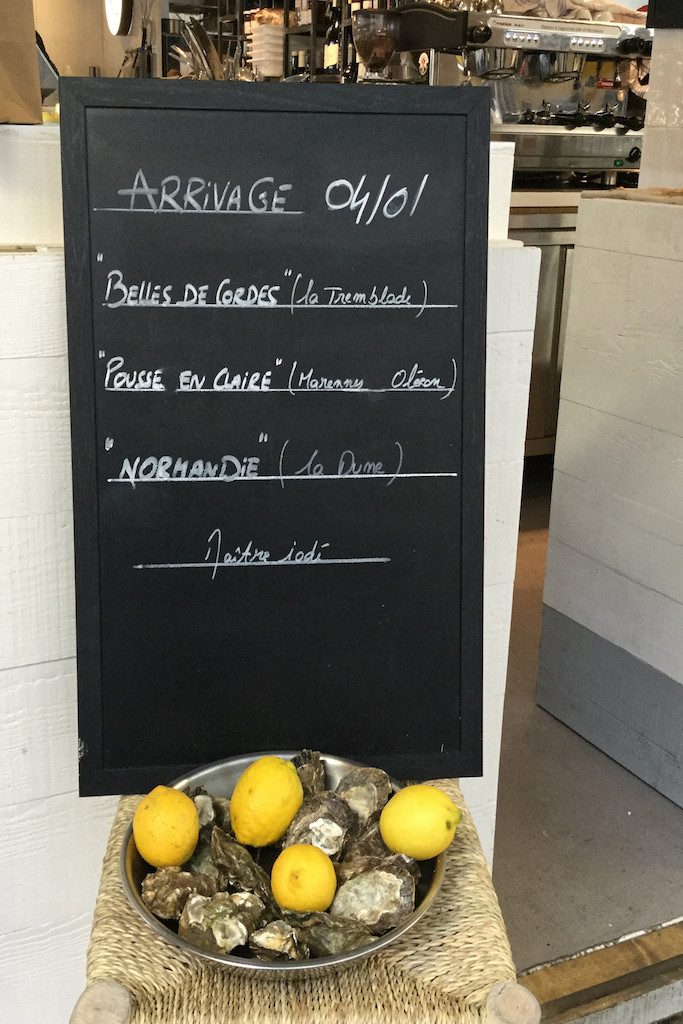 ARRIVAGE 04/01
"BELLES DE CORDES" (la Tremblade)
"POUSSE EN CLAIRE" (Marennes Oléron)
"NORMANDIE" (la Dune)
Naître iodé